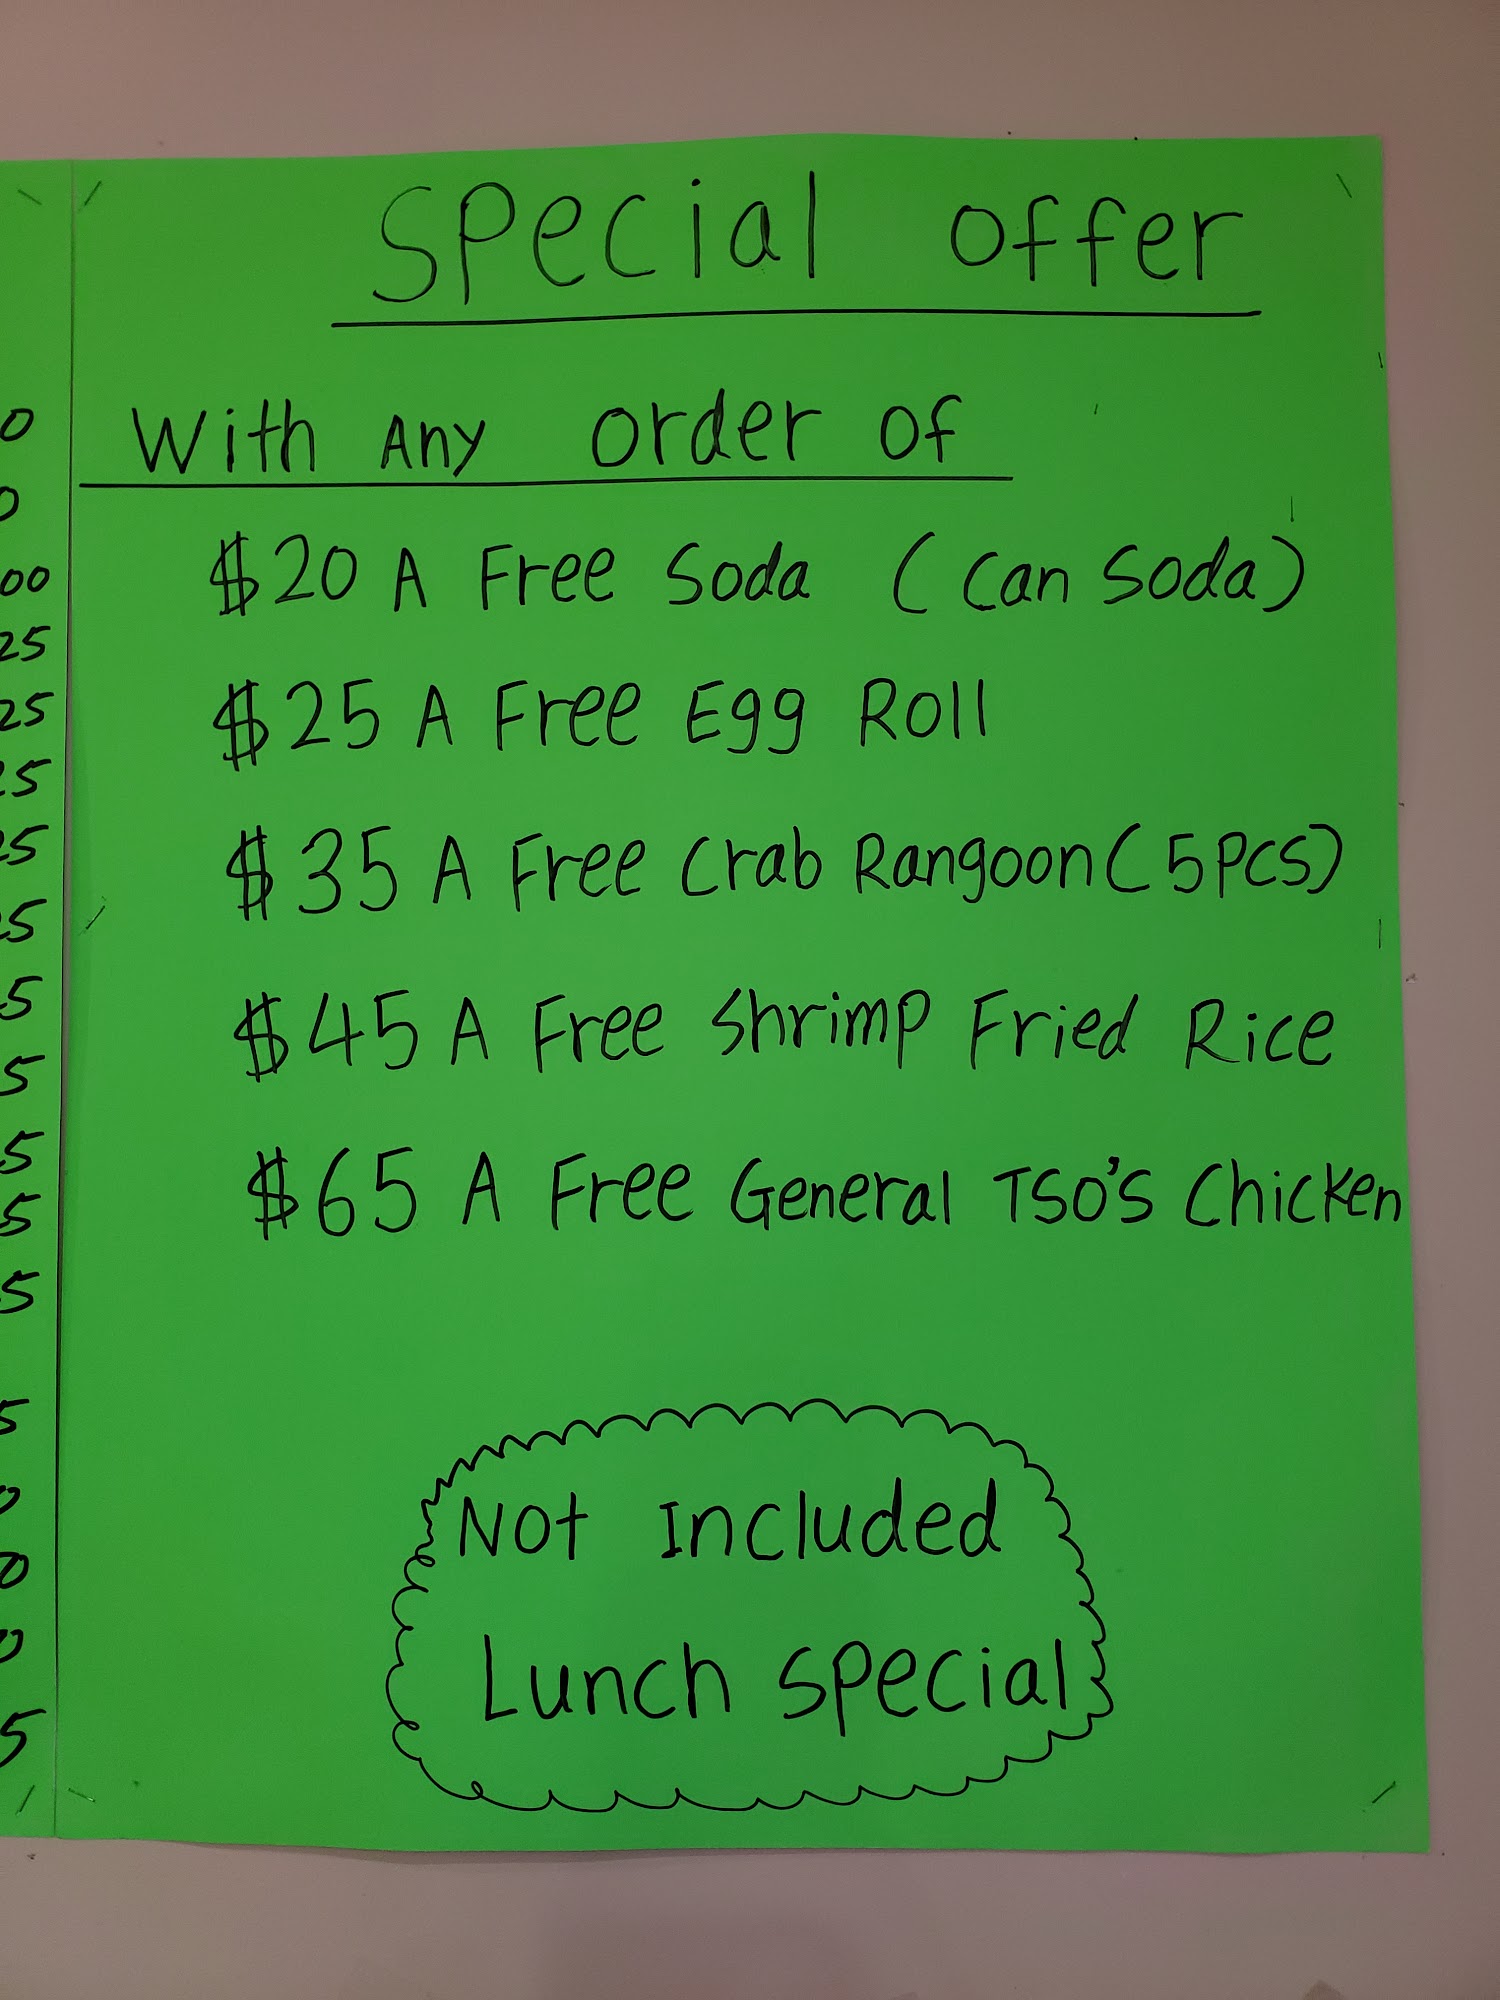 Special Offer
With Any Order Of
$20 A Free Soda (Can Soda)
$25 A Free Egg Roll
$35 A Free Crab Rangoon (5PCS)
$45 A Free Shrimp Fried Rice
$65 A Free General TSO'S Chicken
Not Included
Lunch Special